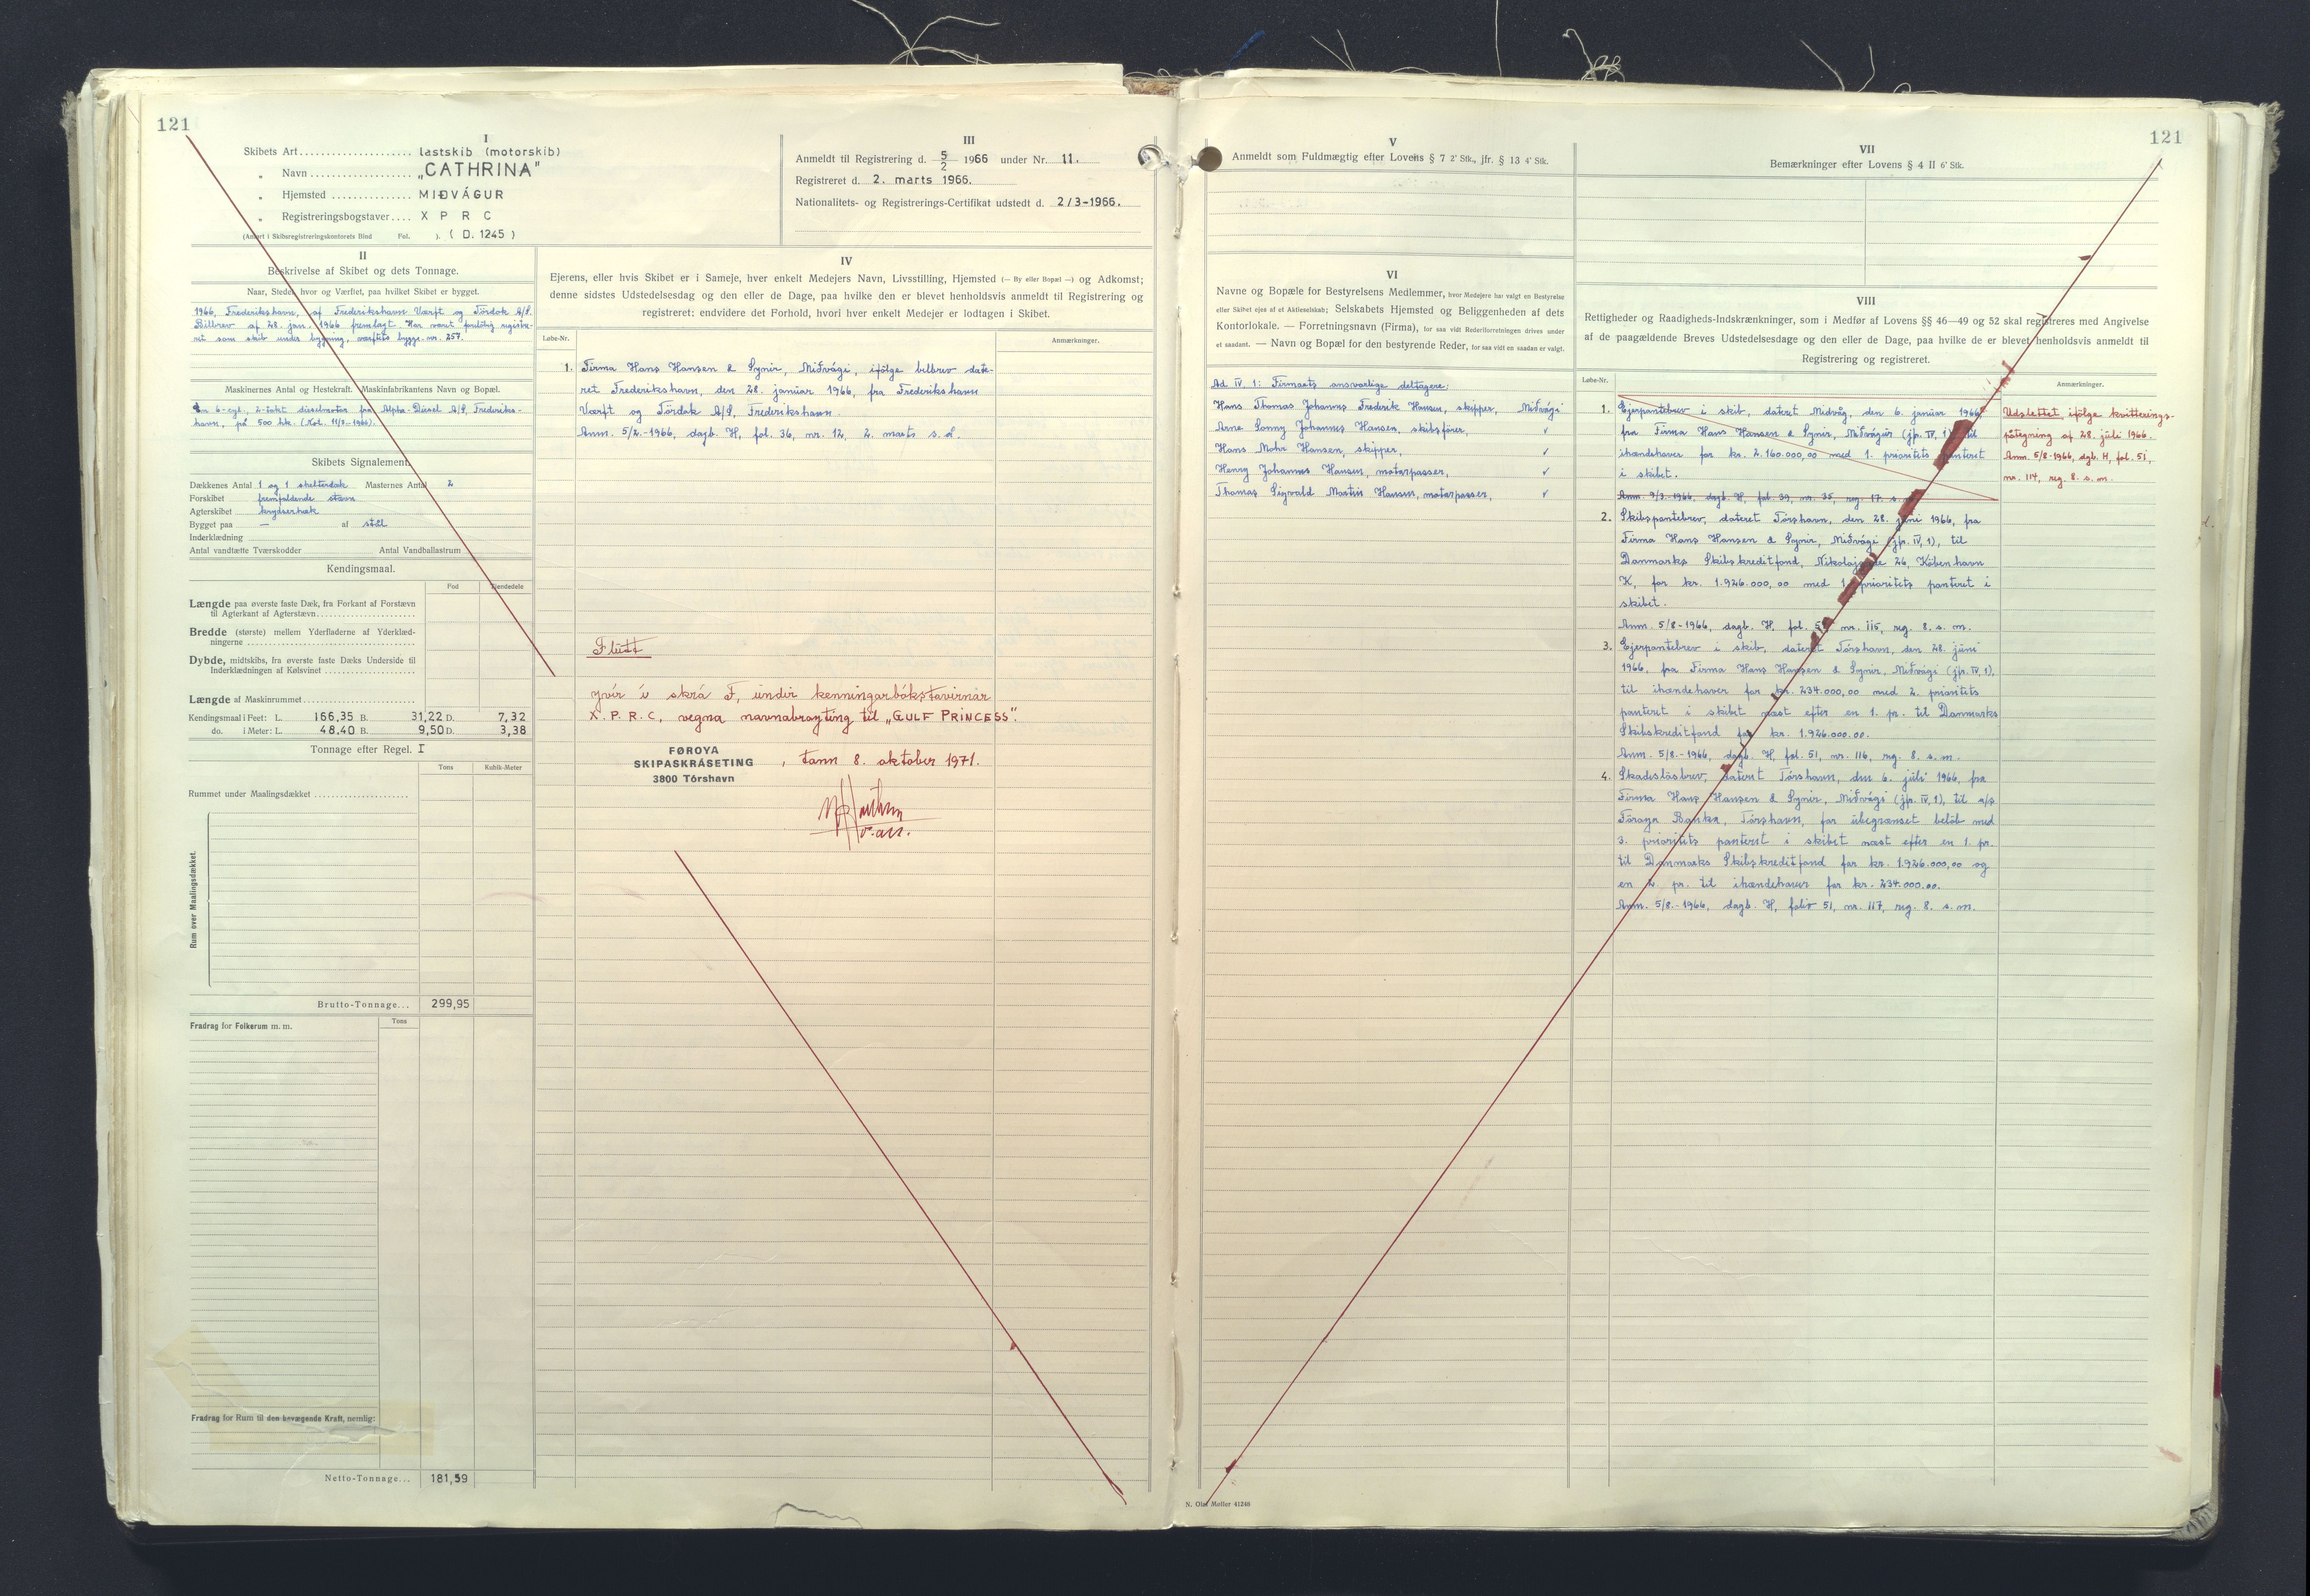 121
I
Skibets Art.................... lastskib (motorskib)
„ Navn.................... „CATHRINA”
„ Hjemsted............... MIÐVÁGUR
„ Registreringsbogstaver.... X P R C
(Anført i Skibsregistreringskontorets Bind Fol. ). ( D. 1245 )
III
Anmeldt til Registrering d. 5/2 1966 under Nr. 11.
Registreret d. 2. marts 1966.
Nationalitets- og Registrerings-Certifikat udstedt d. 2/3-1966.
II
Beskrivelse af Skibet og dets Tonnage.
Naar, Stedet hvor og Værftet, paa hvilket Skibet er bygget.
1966, Frederikshavn, af Frederikshavn Værft og Tördok A/S.
Bilbrev af 28. jan. 1966 fremlagt. Har været foreløbig registre-
ret som skib under bygning, værftets bygge-nr. 257.
Maskinernes Antal og Hestekraft. Maskinfabrikantens Navn og Bopæl.
En 6-cyl., 2-takt dieselmotor fra Alpha-Diesel A/S, Frederiks-
havn, på 500 hk.
Skibets Signalement.
Dækkenes Antal 1 og 1 shelterdæk Masternes Antal 2
Forskibet fremfaldende stævn
Agterskibet krydserhæk
Bygget paa — af stål
Inderklædning
Antal vandtætte Tværskodder Antal Vandballastrum
Kendingsmaal.
Fod Tiendedele
Længde paa øverste faste Dæk, fra Forkant af Forstævn
til Agterkant af Agterstævn
Bredde (største) mellem Yderfladerne af Yderklæd-
ningerne
Dybde, midtskibs, fra øverste faste Dæks Underside til
Inderklædningen af Kølsvinet
Længde af Maskinrummet
Kendingsmaal i Feet: L. 166,35 B. 31,22 D. 7,32
do. i Meter: L. 48,40 B. 9,50 D. 3,38
Tonnage efter Regel. I
Tons Kubik-Meter
Rummet under Maalingsdækket
Rum over Maalingsdækket.
Brutto-Tonnage... 299,95
Fradrag for Folkerum m. m. Tons
Fradrag for Rum til den bevægende Kraft, nemlig:
Netto-Tonnage... 181,59
IV
Ejerens, eller hvis Skibet er i Sameje, hver enkelt Medejers Navn, Livsstilling, Hjemsted (— By eller Bopæl —) og Adkomst;
denne sidstes Udstedelsesdag og den eller de Dage, paa hvilke den er blevet henholdsvis anmeldt til Registrering og
registreret: endvidere det Forhold, hvori hver enkelt Medejer er lodtagen i Skibet.
Løbe-Nr. Anmærkninger.
1. Firma Hans Hansen & Synir, Miðvági, ifölge bilbrev date-
ret Frederikshavn, den 28. januar 1966, fra Frederikshavn
Værft og Tördok A/S, Frederikshavn.
Anm. 5/2.-1966, dagb. H, fol. 36, nr. 12, 2. marts s. å.
Flutt
yvir í skrá F, undir kenningarbókstavirnar
X. P. R. C, vegna navnabroyting til „GULF PRINCESS”.
FØROYA
SKIPASKRÁSETING
3800 Tórshavn
, tann 8. oktober 1971.
121
V
Anmeldt som Fuldmægtig efter Lovens § 7 2' Stk., jfr. § 13 4' Stk.
VI
Navne og Bopæle for Bestyrelsens Medlemmer, hvor Medejere har valgt en Bestyrelse
eller Skibet ejes af et Aktieselskab; Selskabets Hjemsted og Beliggenheden af dets
Kontorlokale. — Forretningsnavn (Firma), for saa vidt Rederiforretningen drives under
et saadant. — Navn og Bopæl for den bestyrende Reder, for saa vidt en saadan er valgt.
Ad IV, 1: Firmaets ansvarlige deltagere:
Hans Thomas Johannus Frederik Hansen, skipper, Miðvági
Arne Sonny Johannes Hansen, skibsfører, ✓
Hans Mohr Hansen, skipper, ✓
Henry Johannes Hansen, motorpasser, ✓
Thomas Sigvald Martin Hansen, motorpasser, ✓
N. Olaf Møller 41248
VII
Bemærkninger efter Lovens § 4 II 6' Stk.
VIII
Rettigheder og Raadigheds-Indskrænkninger, som i Medfør af Lovens §§ 46—49 og 52 skal registreres med Angivelse
af de paagældende Breves Udstedelsesdage og den eller de Dage, paa hvilke de er blevet henholdsvis anmeldt til
Registrering og registreret.
Løbe-Nr. Anmærkninger.
1. Ejerpantebrev i skib, dateret Midvåg, den 6. januar 1966
fra Firma Hans Hansen & Synir, Miðvágur (jfr. IV, 1) til
ihændehaver for kr. 2.160.000,00 med 1. prioritets panteret
i skibet.
Anm. 9/3-1966, dagb. H, fol. 39, nr. 35, reg. 17. s. m.
Udslettet, ifölge kvitterings-
påtegning af 28. júli 1966.
Anm. 5/8-1966, dgb. H, fol. 51,
nr. 114, reg. 8. s. m.
2. Skibspantebrev, dateret Tórshavn, den 28. juni 1966, fra
Firma Hans Hansen & Synir, Miðvági (jfr. IV, 1), til
Danmarks Skibskreditfond, Nikolajgade 26, København
K, for kr. 1.926.000,00 med 1. prioritets panteret i
skibet.
Anm. 5/8-1966, dagb. H, fol. 51, nr. 115, reg. 8. s. m.
3. Ejerpantebrev i skib, dateret Tórshavn, den 28. juni
1966, fra Firma Hans Hansen & Synir, Miðvági (jfr. IV, 1),
til ihændehaver for kr. 234.000,00 med 2. prioritets
panteret i skibet næst efter en 1. pr. til Danmarks
Skibskreditfond for kr. 1.926.000.00.
Anm. 5/8.-1966, dagb. H, fol. 51, nr. 116, reg. 8. s. m.
4. Skadesløsbrev, dateret Tórshavn, den 6. júli 1966, fra
Firma Hans Hansen & Synir, Miðvági (jfr. IV, 1), til a/s
Föroya Banka, Tórshavn, for ubegrænset beløb med
3. prioritets panteret i skibet næst efter en 1. pr.
til Danmarks Skibskreditfond for kr. 1.926.000,00 og
en 2. pr. til ihændehaver for kr. 234.000.00.
Anm. 5/8.-1966, dagb. H, folio 51, nr. 117, reg. 8. s. m.